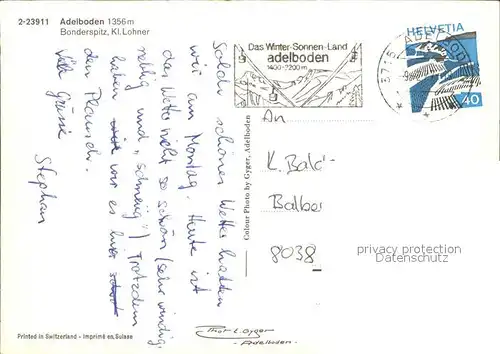 2-23911 Adelboden 1356m
Bonderspitz, Kl. Lohner
Solch schönes Wetter hatten
wir am Montag. Heute ist
das Wetter nicht so schön (sehr windig,
neblig und „schneeig“) Trotzdem
haben wir es hier
den Plausch.
Viele Grüsse
Stephan
Colour Photo by Gyger, Adelboden
Das Winter-Sonnen-Land
adelboden
1400-2200m
HELVETIA
40
ADELBODEN
An
K. Bald-
Balber
8038
privacy protection
Printed in Switzerland - Imprimé en Suisse
Gyger
-Adelboden-